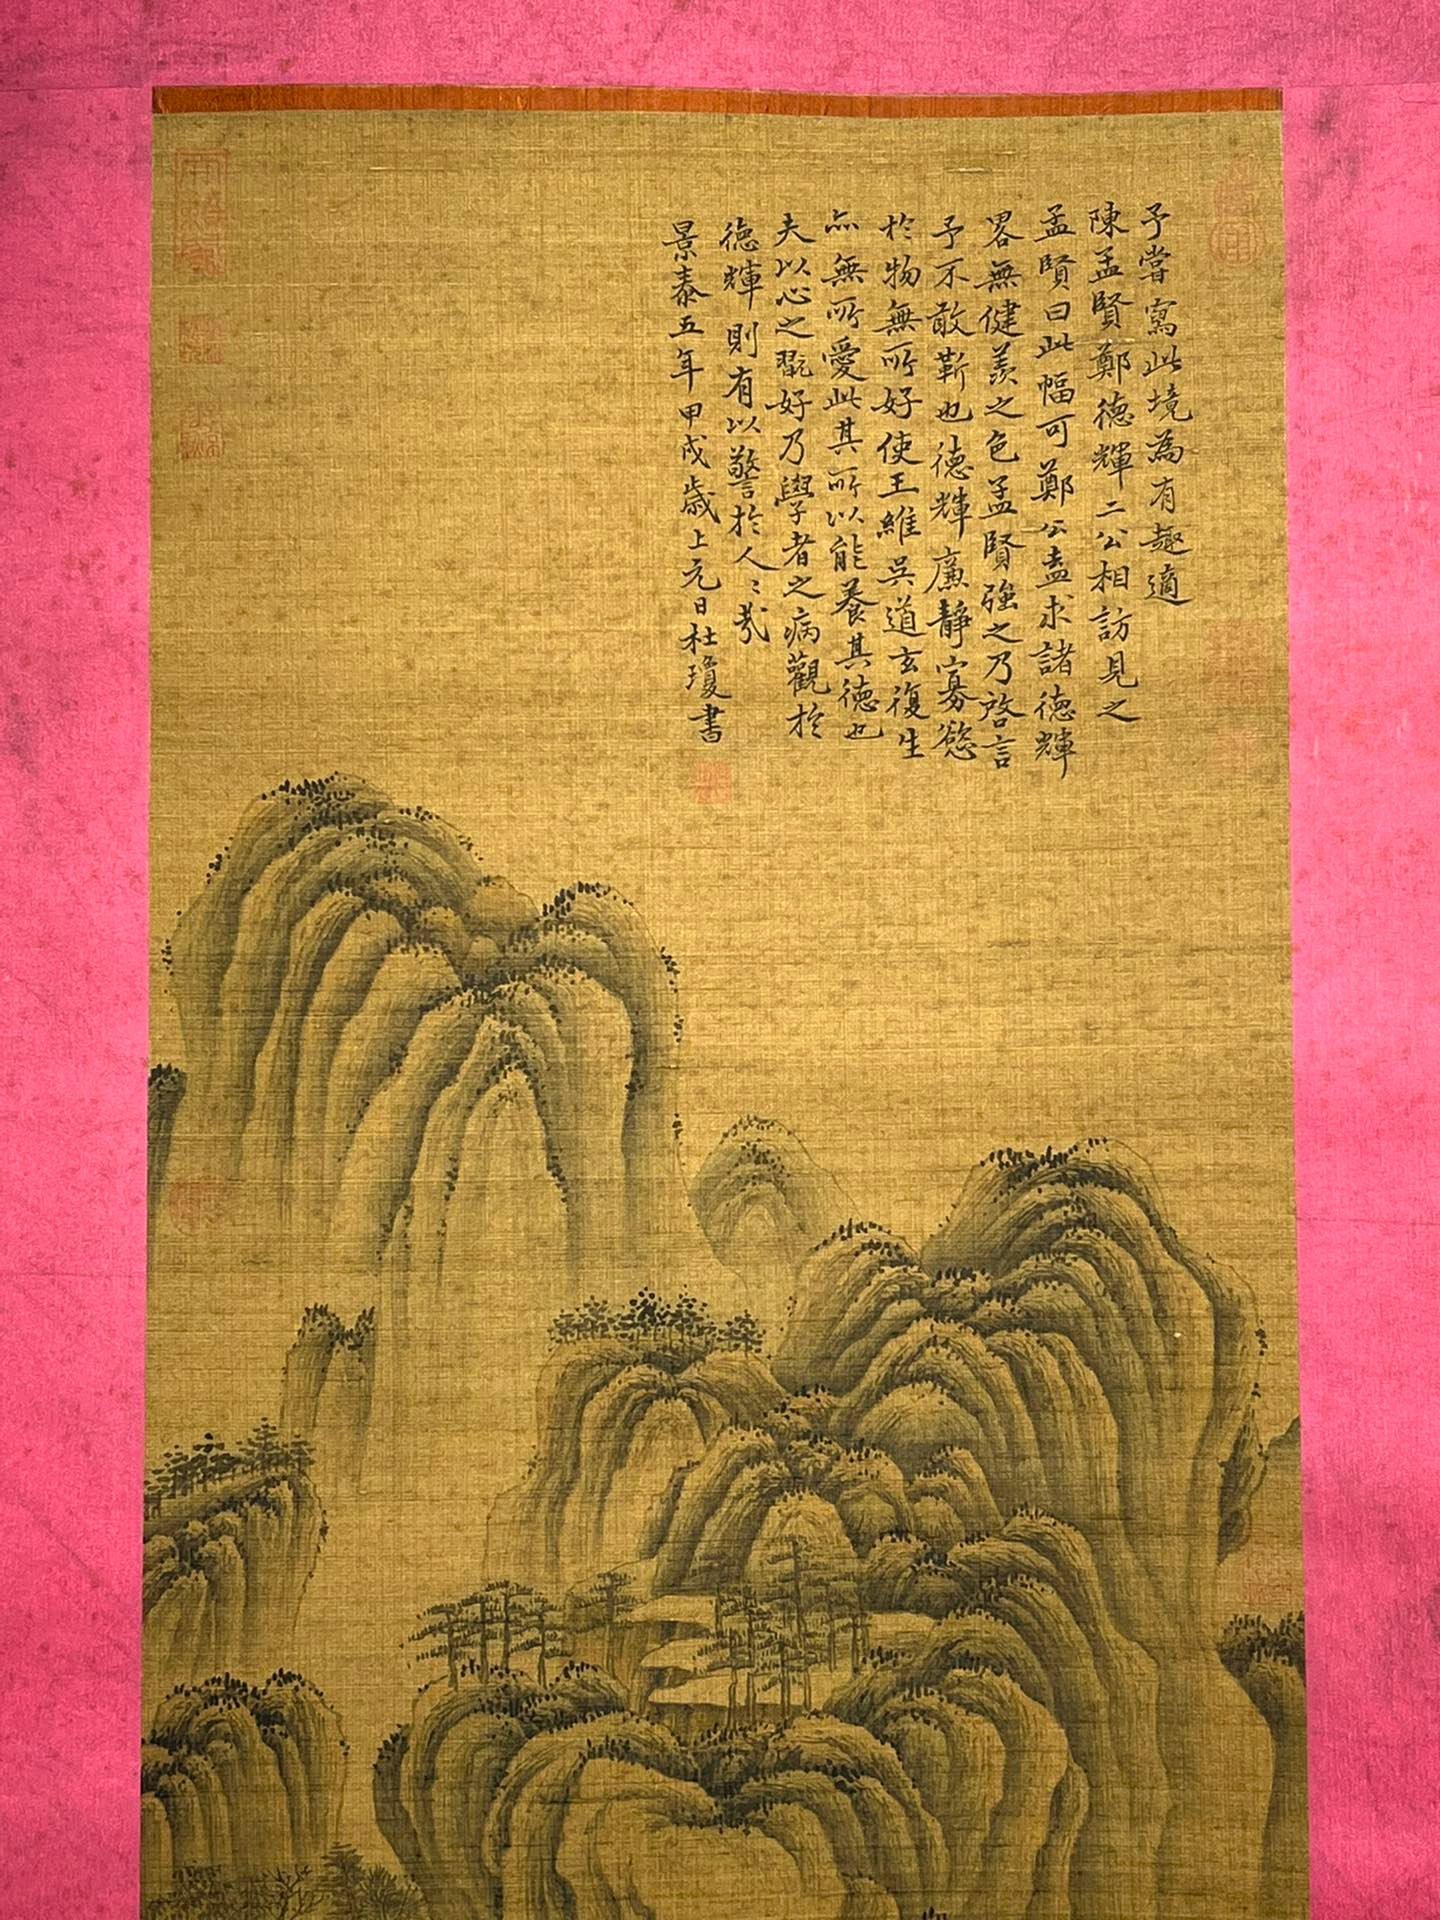 予嘗寫此境為有趣適
陳孟賢鄭德輝二公相訪見之
孟賢曰此幅可鄭公盍求諸德輝
畧無健羨之色孟賢強之乃啓言
予不敢靳也德輝廉靜寡慾
於物無所好使王維吳道玄復生
亦無所愛此其所以能養其德也
夫以心之翫好乃學者之病觀於
德輝則有以警於人〻哉
景泰五年甲戌歲上元日杜瓊書